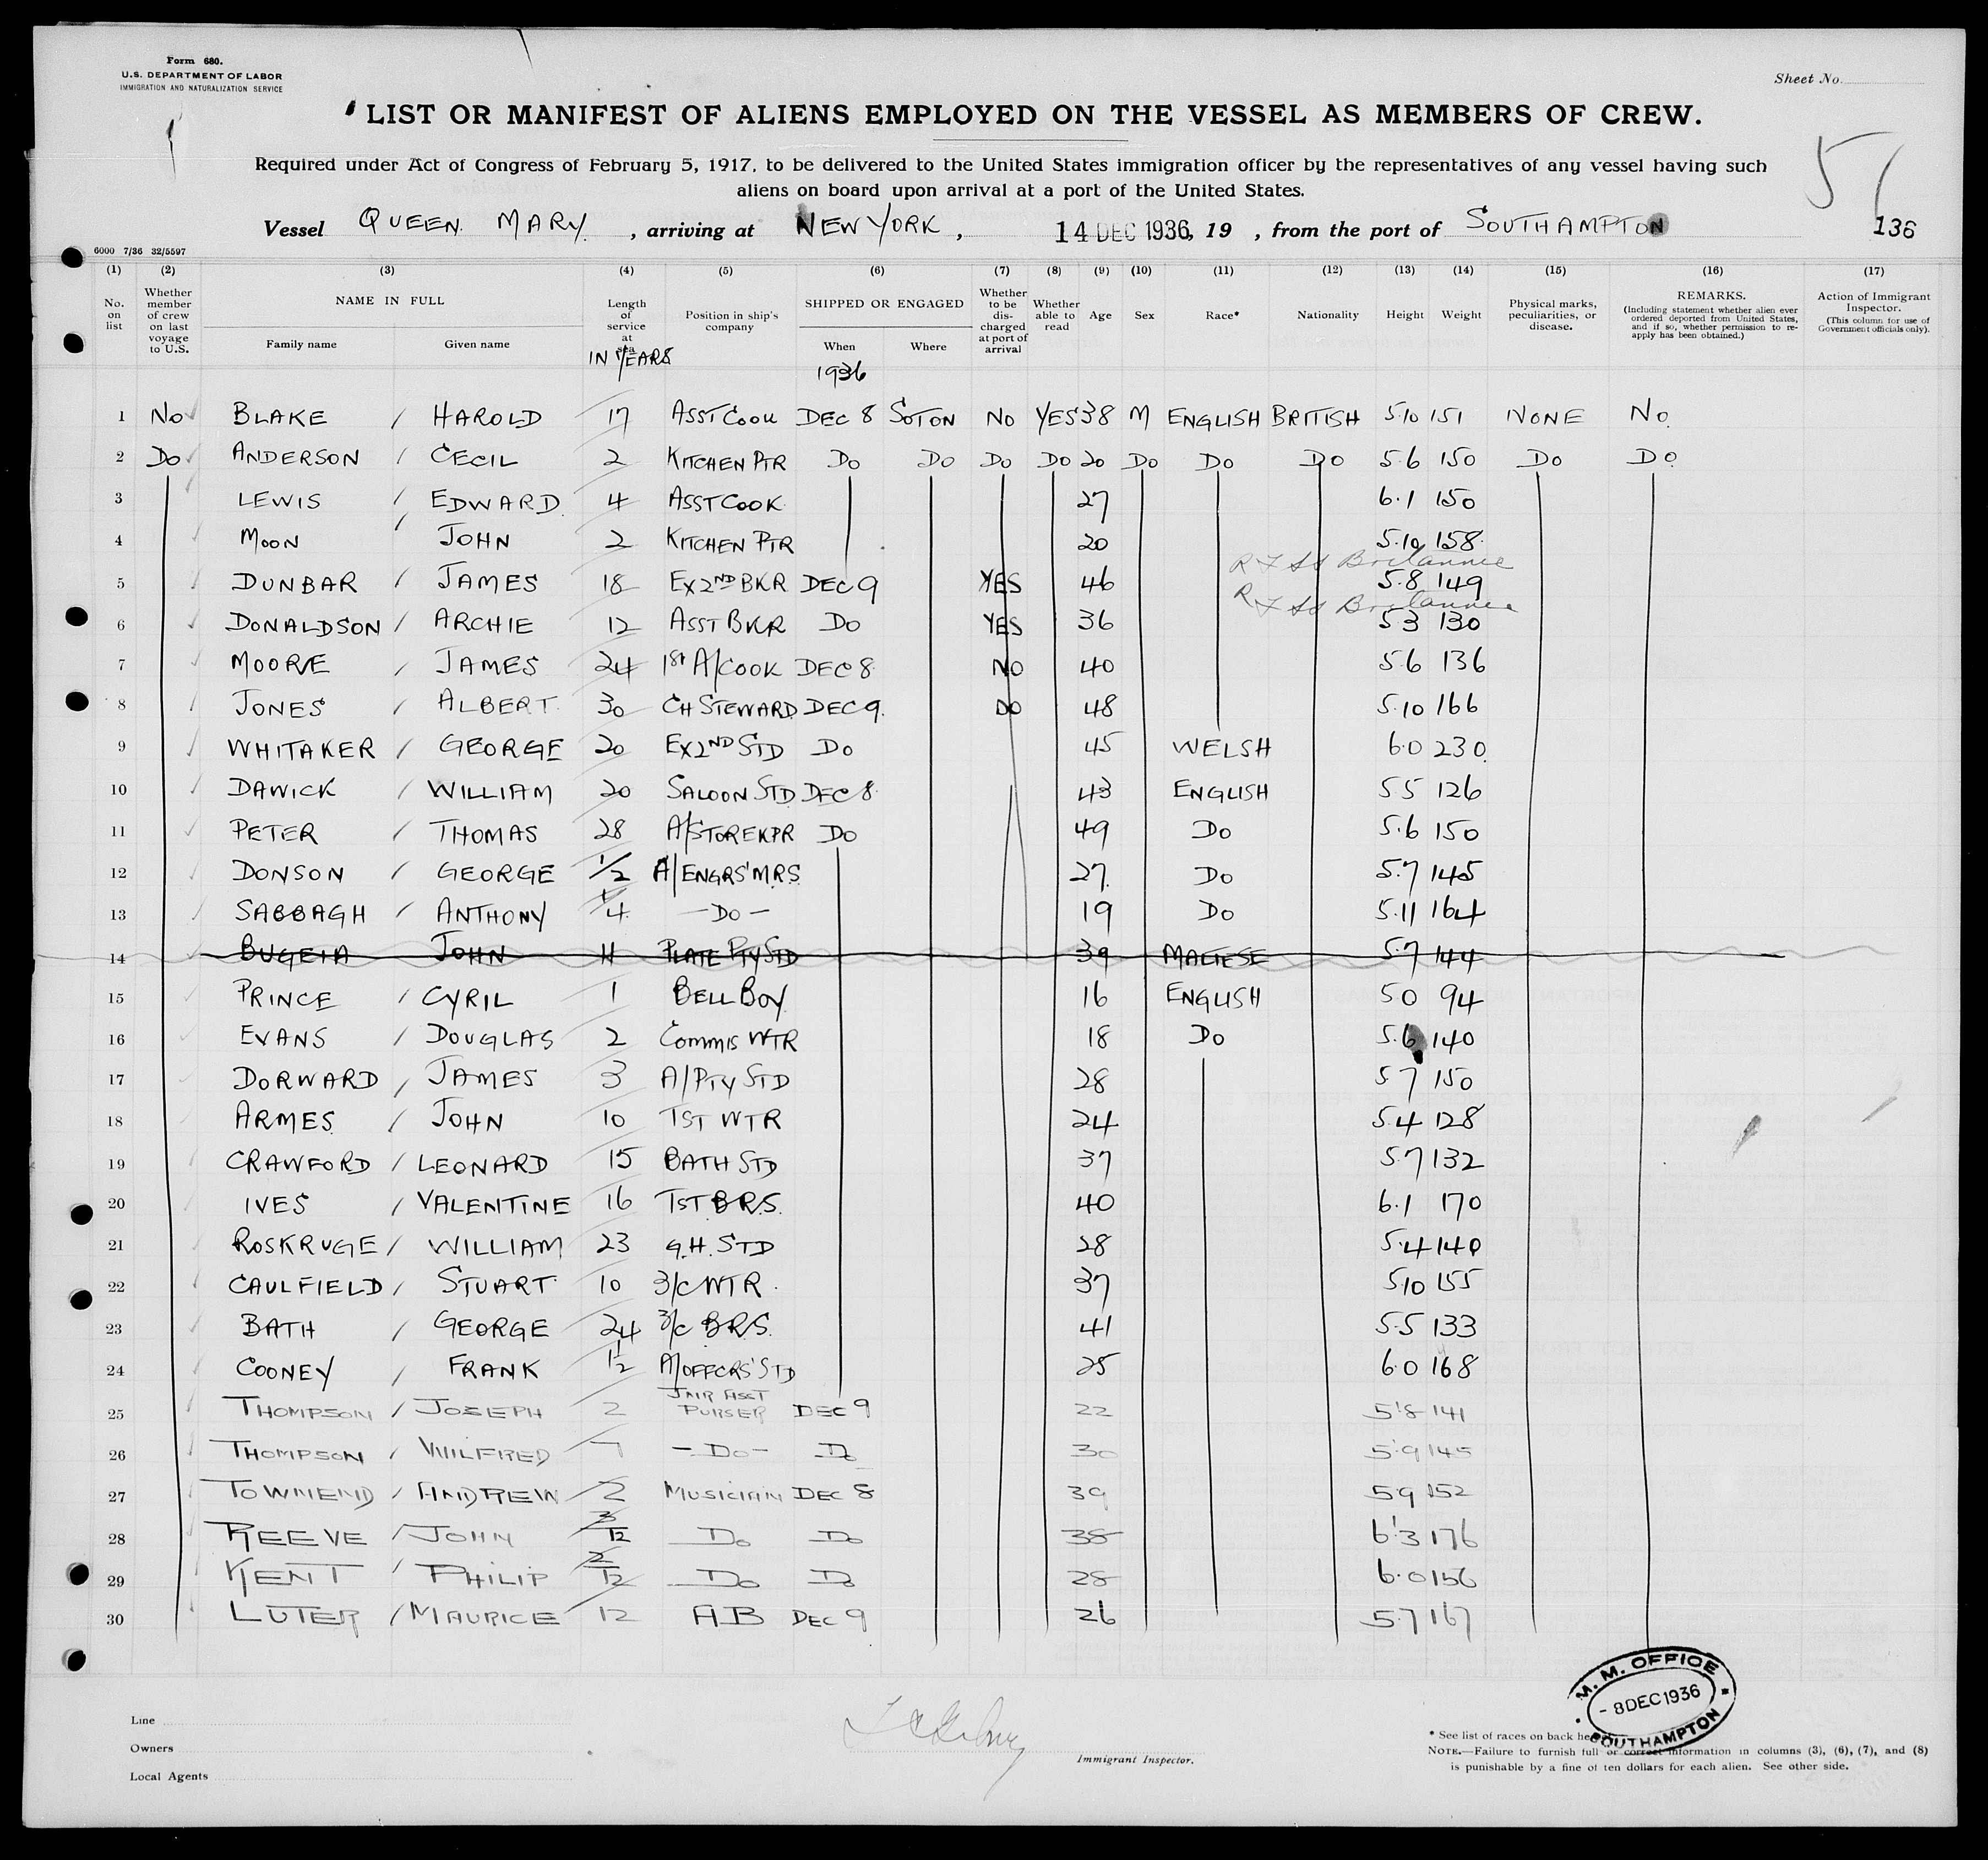 Form 680.
U.S. DEPARTMENT OF LABOR
IMMIGRATION AND NATURALIZATION SERVICE
Sheet No.
LIST OR MANIFEST OF ALIENS EMPLOYED ON THE VESSEL AS MEMBERS OF CREW.
Required under Act of Congress of February 5, 1917, to be delivered to the United States immigration officer by the representatives of any vessel having such
aliens on board upon arrival at a port of the United States.
51
Vessel QUEEN MARY, arriving at NEW YORK, 14 DEC 1936, 19 , from the port of SOUTHAMPTON
136
6000 7/36 32/5597
(1) (2) (3) (4) (5) (6) (7) (8) (9) (10) (11) (12) (13) (14) (15) (16) (17)
No. on list
Whether member of crew on last voyage to U.S.
NAME IN FULL
Family name Given name
Length of service at sea
IN YEARS
Position in ship's company
SHIPPED OR ENGAGED
When Where
1936
Whether to be discharged at port of arrival
Whether able to read
Age
Sex
Race*
Nationality
Height
Weight
Physical marks, peculiarities, or disease.
REMARKS.
(Including statement whether alien ever ordered deported from United States, and if so, whether permission to re-apply has been obtained.)
Action of Immigrant Inspector.
(This column for use of Government officials only).
1 No BLAKE / HAROLD 17 ASST COOK DEC 8 SOTON NO YES 38 M ENGLISH BRITISH 5.10 151 NONE NO.
2 DO ANDERSON / CECIL 2 KITCHEN PTR DO DO DO DO 20 DO DO DO 5.6 150 DO DO.
3 LEWIS / EDWARD 4 ASST COOK 27 6.1 150
4 MOON / JOHN 2 KITCHEN PTR 20 5.10 158
5 DUNBAR / JAMES 18 EX 2ND BKR DEC 9 YES 46 5.8 149
6 DONALDSON / ARCHIE 12 ASST BKR DO YES 36 5.3 130
7 MOORE / JAMES 24 1ST A/COOK DEC 8 NO 40 5.6 136
8 JONES / ALBERT 30 CH STEWARD DEC 9. DO 48 5.10 166
9 WHITAKER / GEORGE 20 EX 2ND STD DO 45 WELSH 6.0 230.
10 DAWICK / WILLIAM 20 SALOON STD DEC 8 43 ENGLISH 5.5 126
11 PETER / THOMAS 28 A/STOREKPR DO 49 DO 5.6 150
12 DONSON / GEORGE 1/2 A/ENGRS' MRS. 27. DO 5.7 145
13 SABBAGH / ANTHONY 1/4 - DO - 19 DO 5.11 164
14 BUGEIA JOHN 11 PLATE PTY STD 39 MALTESE 5.7 144
15 PRINCE / CYRIL 1 BELL BOY 16 ENGLISH 5.0 94
16 EVANS / DOUGLAS 2 COMMIS WTR 18 DO 5.6 140
17 DORWARD / JAMES 3 A/PTY STD 28 5.7 150
18 ARMES / JOHN 10 TST WTR 24 5.4 128
19 CRAWFORD / LEONARD 15 BATH STD 37 5.7 132
20 IVES / VALENTINE 16 TST B.R.S. 40 6.1 170
21 ROSKRUGE / WILLIAM 23 G.H. STD 28 5.4 140
22 CAULFIELD / STUART 10 3/C WTR. 37 5.10 155
23 BATH / GEORGE 24 3/C B.R.S. 41 5.5 133
24 COONEY / FRANK 1/2 A/OFFCRS' STD 25 6.0 168
25 THOMPSON / JOSEPH 2 JNR ASST PURSER DEC 9 22 5'8 141
26 THOMPSON / WILFRED 7 - DO - DO 30 5'9 145
27 TOWNEND / ANDREW 2 MUSICIAN DEC 8 39 5.9 152
28 REEVE / JOHN 3/12 DO DO 38 6'3 176
29 KENT / PHILIP 2/12 DO DO 28 6.0 156
30 LUTER / MAURICE 12 AB DEC 9 26 5.7 167
M.M. OFFICE
- 8 DEC 1936
SOUTHAMPTON
Line
Owners
Local Agents
Immigrant Inspector.
* See list of races on back
NOTE.—Failure to furnish full or correct information in columns (3), (6), (7), and (8)
is punishable by a fine of ten dollars for each alien. See other side.